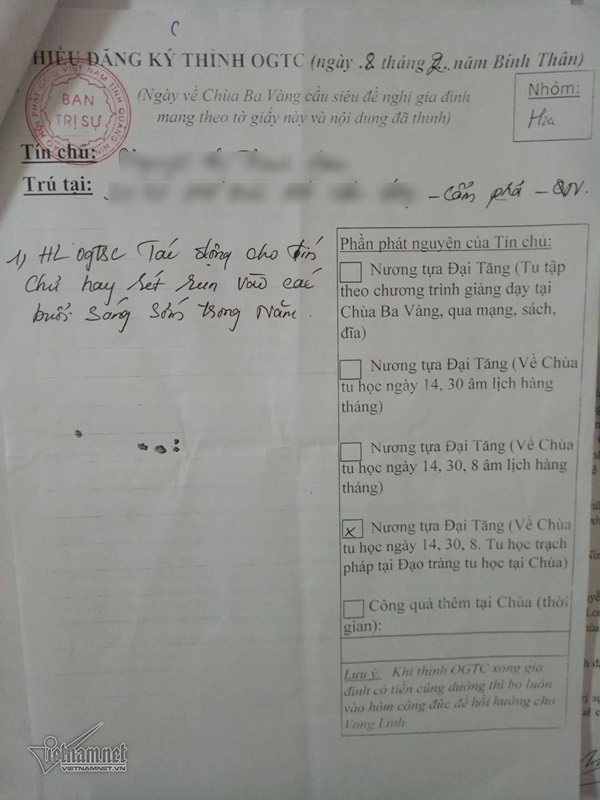 HIẾU ĐĂNG KÝ THỈNH OGTC (ngày .8 tháng 2.. năm Bính Thân)
(Ngày về Chùa Ba Vàng cầu siêu đề nghị gia đình
mang theo tờ giấy này và nội dung đã thỉnh)
Nhóm:
Hoa
BAN
TRỊ SỰ
Tín chủ:
Trú tại: - Cẩm phả - QN.
1) HL OGTC Tác động cho tín
chủ hay rét run vào các
buổi sáng sớm trong năm.
Phần phát nguyện của Tín chủ:
Nương tựa Đại Tăng (Tu tập
theo chương trình giảng dạy tại
Chùa Ba Vàng, qua mạng, sách,
đĩa)
Nương tựa Đại Tăng (Về Chùa
tu học ngày 14, 30 âm lịch hàng
tháng)
Nương tựa Đại Tăng (Về Chùa
tu học ngày 14, 30, 8 âm lịch hàng
tháng)
x Nương tựa Đại Tăng (Về Chùa
tu học ngày 14, 30, 8. Tu học trạch
pháp tại Đạo tràng tu học tại Chùa)
Công quả thêm tại Chùa (thời
gian):
Lưu ý: Khi thỉnh OGTC xong gia
đình có tiền cúng dường thì bỏ luôn
vào hòm công đức để hồi hướng cho
Vong Linh
vietnamnet
VIETNAMNET.VN